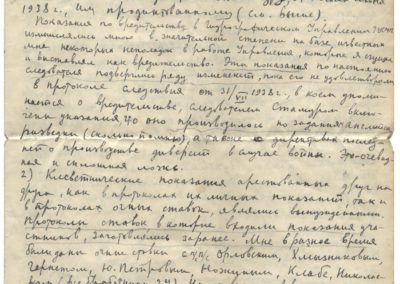 1938 г., им продиктованному (см. выше).
Показания по вредительству в Гидрографическом Управлении
измышлялись мною в значительной степени на базе известных
мне некоторых неполадок в работе Управления, которые я сгущал
и выставлял как вредительство. Эти показания по настоянию
следователя подверглись ряду изменений, пока его не удовлетворили
в протоколе следствия от 31/VII 1938 г., в коем упоми-
нается о вредительстве, следователем вклю-
чены указания, что оно производилось по заданию английск.
разведки (сколько помню), а также о директивах послед-
ней о производстве диверсий в случае войны. Это очевид-
ная и сплошная ложь.
2) Клеветнические показания арестованных друг на
друга, как в протоколах их личных показаний, так и
в протоколах очных ставок, являлись вынужденными.
Протоколы ставок в которые входили показания уча-
стников, заготовлялись заранее. Мне в разное время
были даны очные ставки с Орловским, Хмызниковым,
Ю. Петровым,